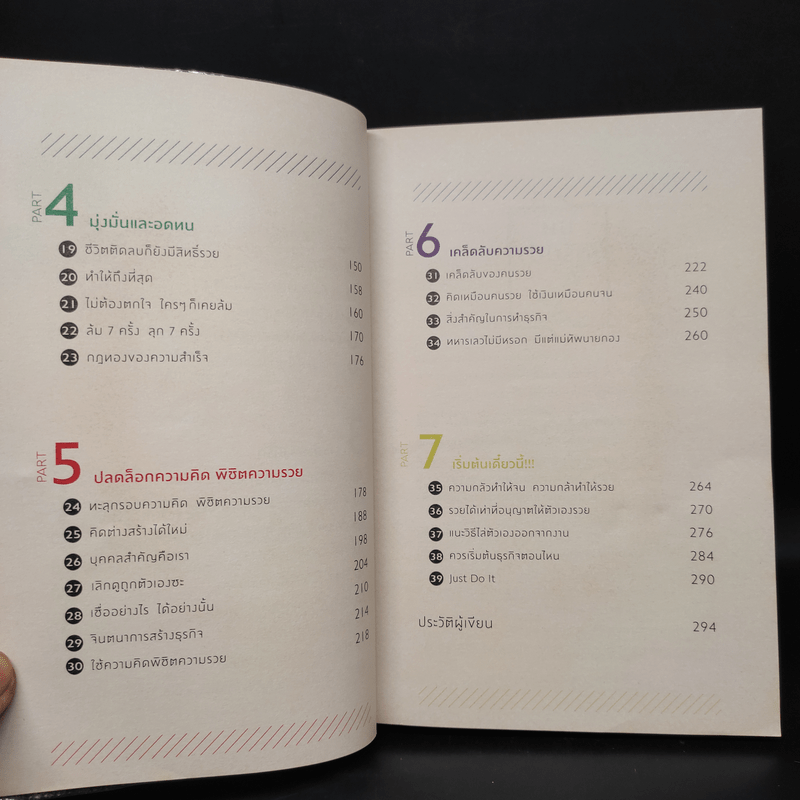 PART 4 มุ่งมั่นและอดทน
19 ชีวิตติดลบก็ยังมีสิทธิ์รวย 150
20 ทำให้ถึงที่สุด 158
21 ไม่ต้องตกใจ ใครๆ ก็เคยล้ม 160
22 ล้ม 7 ครั้ง ลุก 7 ครั้ง 170
23 กฎทองของความสำเร็จ 176
PART 5 ปลดล็อกความคิด พิชิตความรวย
24 ทะลุกรอบความคิด พิชิตความรวย 178
25 คิดต่างสร้างได้ใหม่ 188
26 บุคคลสำคัญคือเรา 198
27 เลิกดูถูกตัวเองซะ 204
28 เชื่ออย่างไร ได้อย่างนั้น 210
29 จินตนาการสร้างธุรกิจ 214
30 ใช้ความคิดพิชิตความรวย 218
PART 6 เคล็ดลับความรวย
31 เคล็ดลับของคนรวย 222
32 คิดเหมือนคนรวย ใช้เงินเหมือนคนจน 240
33 สิ่งสำคัญในการทำธุรกิจ 250
34 ทหารเลวไม่มีหรอก มีแต่แม่ทัพนายกอง 260
PART 7 เริ่มต้นเดี๋ยวนี้!!!
35 ความกลัวทำให้จน ความกล้าทำให้รวย 264
36 รวยได้เท่าที่อนุญาตให้ตัวเองรวย 270
37 แนะวิธีไล่ตัวเองออกจากงาน 276
38 ควรเริ่มต้นธุรกิจตอนไหน 284
39 Just Do It 290
ประวัติผู้เขียน 294